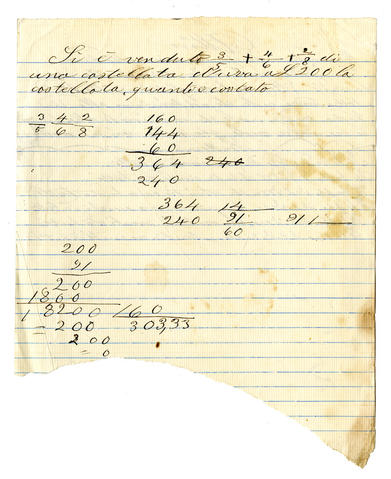 Si è venduto 3/5 + 4/6 + 2/8 di
una castellata d'uva a £ 200 la
castellata, quanti è costato
3/5 4/6 2/8 160
144
60
364 240
240
364 14
240 91 911
60
200
91
200
1800
18200 60
= 200 303,33
200
= 0